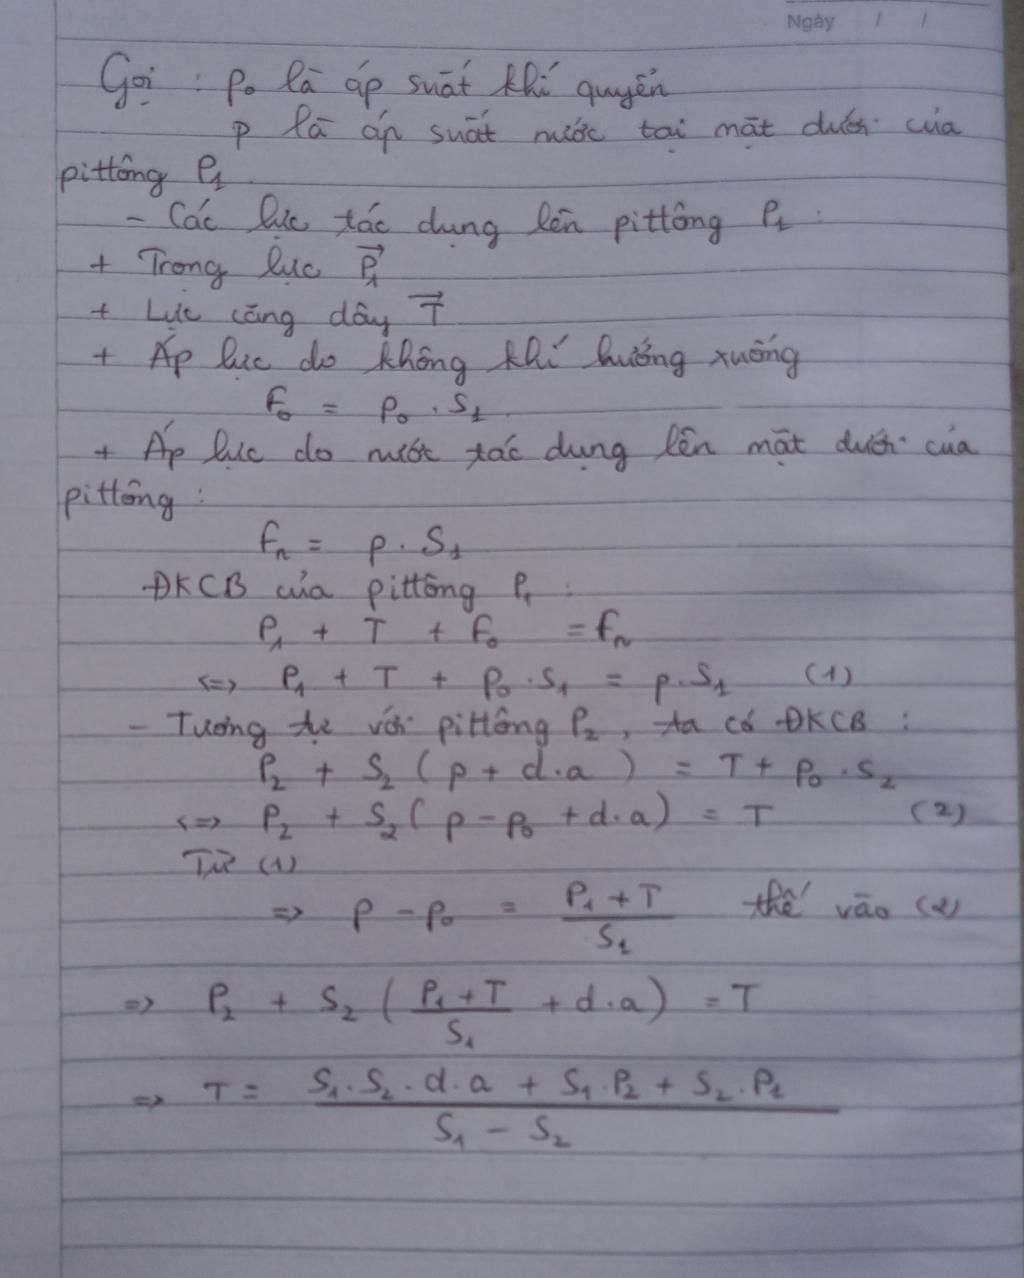 Ngày / /
Gọi : p₀ là áp suất khí quyển
p là áp suất nước tại mặt dưới của
pittông P₁
- Các lực tác dụng lên pittông P₁ :
+ Trọng lực P₁⃗
+ Lực căng dây T⃗
+ Áp lực do không khí hướng xuống
F₀ = p₀ . S₁
+ Áp lực do nước tác dụng lên mặt dưới của
pittông :
Fₙ = p . S₁
ĐKCB của pittông P₁ :
P₁ + T + F₀ = Fₙ
<=> P₁ + T + p₀ . S₁ = p . S₁ (1)
- Tương tự với pittông P₂, ta có ĐKCB :
P₂ + S₂ ( p + d . a ) = T + p₀ . S₂
<=> P₂ + S₂ ( p - p₀ + d . a ) = T (2)
Từ (1)
=> p - p₀ = (P₁ + T)/S₁ thế vào (2)
=> P₂ + S₂ ( (P₁ + T)/S₁ + d . a ) = T
=> T = (S₁ . S₂ . d . a + S₁ . P₂ + S₂ . P₁)/(S₁ - S₂)